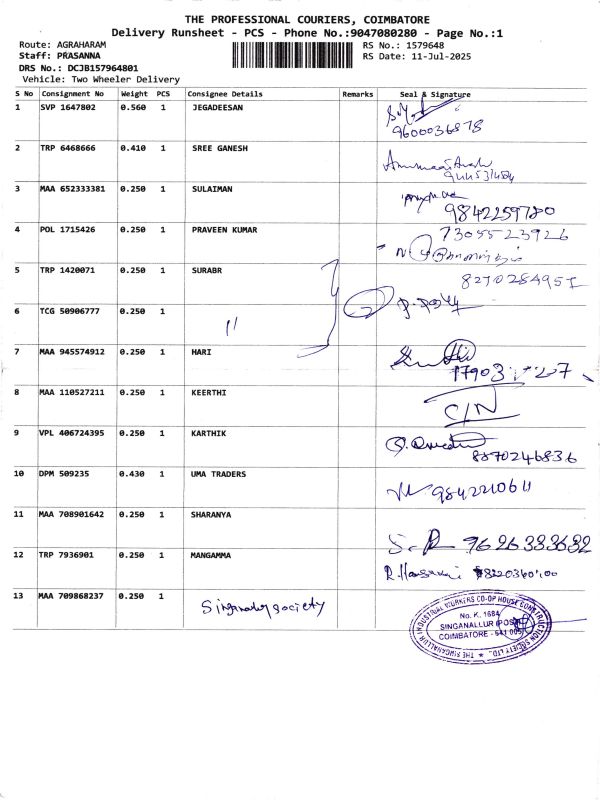 THE PROFESSIONAL COURIERS, COIMBATORE
Delivery Runsheet - PCS - Phone No.:9047080280 - Page No.:1
Route: AGRAHARAM RS No.: 1579648
Staff: PRASANNA RS Date: 11-Jul-2025
DRS No.: DCJB157964801
Vehicle: Two Wheeler Delivery
S No Consignment No Weight PCS Consignee Details Remarks Seal & Signature
1 SVP 1647802 0.560 1 JEGADEESAN
9600036878
2 TRP 6468666 0.410 1 SREE GANESH
3 MAA 652333381 0.250 1 SULAIMAN
9842259780
4 POL 1715426 0.250 1 PRAVEEN KUMAR 7305523926
5 TRP 1420071 0.250 1 SURABR
8270284951
6 TCG 50906777 0.250 1 "
2
7 MAA 945574912 0.250 1 HARI
8 MAA 110527211 0.250 1 KEERTHI
C/N
9 VPL 406724395 0.250 1 KARTHIK
8870246836
10 DPM 509235 0.430 1 UMA TRADERS
9842210611
11 MAA 708901642 0.250 1 SHARANYA
S.R 9626333632
12 TRP 7936901 0.250 1 MANGAMMA
13 MAA 709868237 0.250 1 Singanallur society
THE SINGANALLUR INDUSTRIAL WORKERS CO-OP HOUSE CONSTRUCTION SOCIETY LTD.
No. K. 1684
SINGANALLUR (POST)
COIMBATORE - 641 005